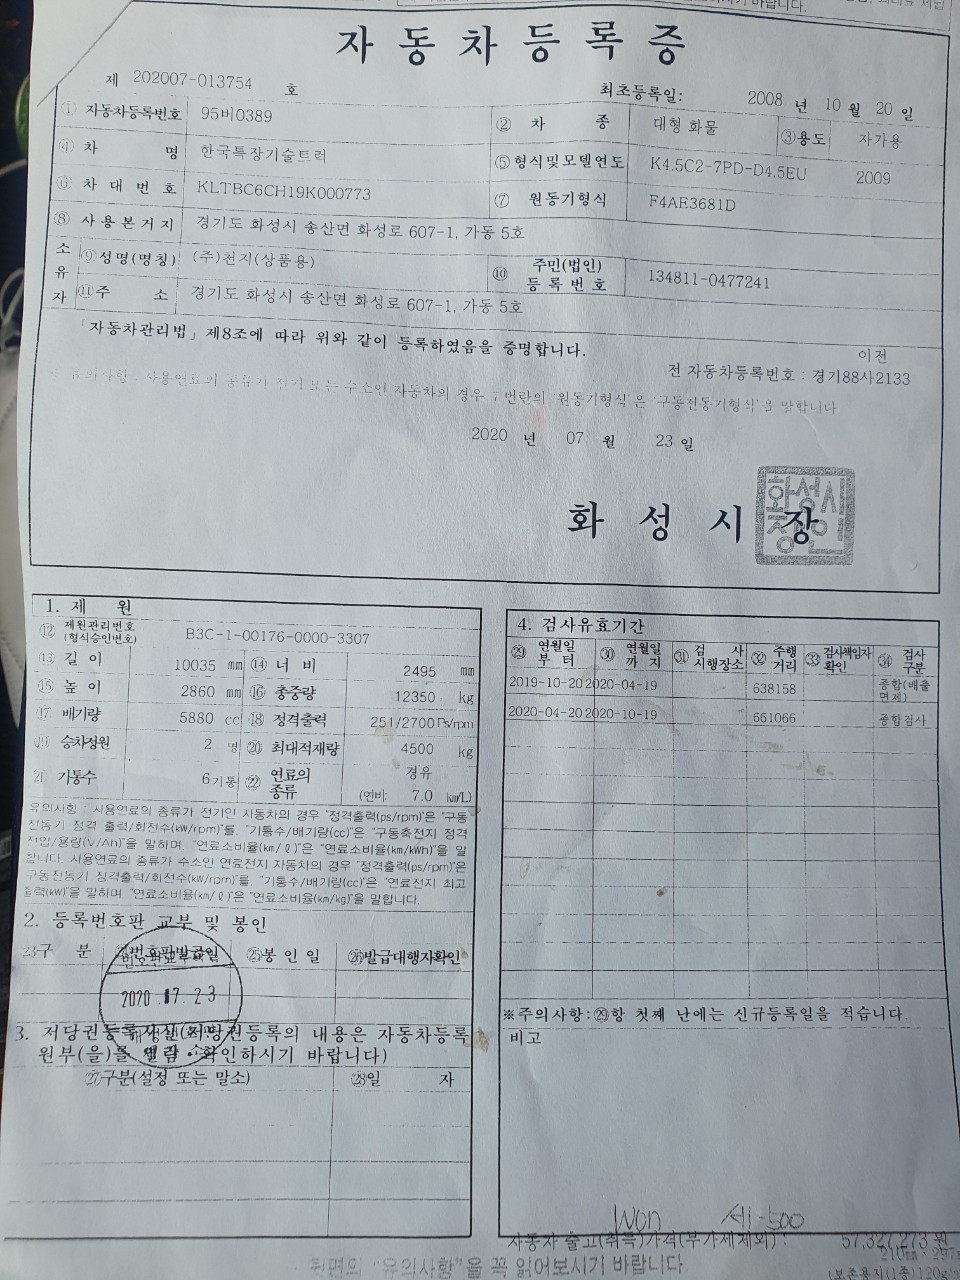 시기 바랍니다.
자동차등록증
제 202007-013754 호
최초등록일: 2008 년 10 월 20 일
① 자동차등록번호 95버0389 ② 차 종 대형 화물 ③용도 자가용
④ 차 명 한국특장기술트럭 ⑤ 형식및모델연도 K4.5C2-7PD-D4.5EU 2009
⑥ 차대번호 KLTBC6CH19K000773 ⑦ 원동기형식 F4AE3681D
⑧ 사용본거지 경기도 화성시 송산면 화성로 607-1, 가동 5호
소유자 ⑨성명(명칭) (주)천지(상품용) ⑩ 주민(법인)등록번호 134811-0477241
⑪주 소 경기도 화성시 송산면 화성로 607-1, 가동 5호
「자동차관리법」 제8조에 따라 위와 같이 등록하였음을 증명합니다.
이전
전 자동차등록번호 : 경기88사2133
유의사항 : 사용연료의 종류가 전기 또는 수소인 자동차의 경우 7번란의 '원동기형식'은 '구동전동기형식'을 말합니다
2020 년 07 월 23 일
화성시장
화성시장인
1. 제 원
⑫ 제원관리번호(형식승인번호) B3C-1-00176-0000-3307
⑬ 길이 10035 mm ⑭ 너비 2495 mm
⑮ 높이 2860 mm ⑯ 총중량 12350 kg
⑰ 배기량 5880 cc ⑱ 정격출력 251/2700 Ps/rpm
⑲ 승차정원 2 명 ⑳ 최대적재량 4500 kg
㉑ 기통수 6기통 ㉒ 연료의 종류 경유
(연비: 7.0 km/L)
유의사항 : 사용연료의 종류가 전기인 자동차의 경우 "정격출력(ps/rpm)"은 "구동
전동기 정격 출력/회전수(kW/rpm)"를, "기통수/배기량(cc)"은 "구동축전지 정격
전압/용량(V/Ah)"을 말하며, "연료소비율(km/ℓ)"은 "연료소비율(km/kWh)"을 말
합니다. 사용연료의 종류가 수소인 연료전지 자동차의 경우 "정격출력(ps/rpm)"은
구동전동기 정격출력/회전수(kW/rpm)"를, "기통수/배기량(cc)"은 "연료전지 최고
출력(kW)"을 말하며, "연료소비율(km/ℓ)"은 "연료소비율(km/kg)"을 말합니다.
2. 등록번호판 교부 및 봉인
㉓구 분 ㉔번호판발급일 ㉕봉인일 ㉖발급대행자확인
2020. 07. 23
3. 저당권등록사실(저당권등록의 내용은 자동차등록
원부(을)를 열람·확인하시기 바랍니다)
㉗구분(설정 또는 말소) ㉘일 자
4. 검사유효기간
㉙ 연월일부터 ㉚ 연월일까지 ㉛ 검사시행장소 ㉜ 주행거리 ㉝ 검사책임자확인 ㉞ 검사구분
2019-10-20 2020-04-19 638158 종합(배출면제)
2020-04-20 2020-10-19 661066 종합검사
※주의사항:㉙항 첫째 난에는 신규등록일을 적습니다.
비고
Won 세-500
자동차 출고(취득)가격(부가세제외) : 57,327,273 원
뒷면의 "유의사항"을 꼭 읽어보시기 바랍니다.